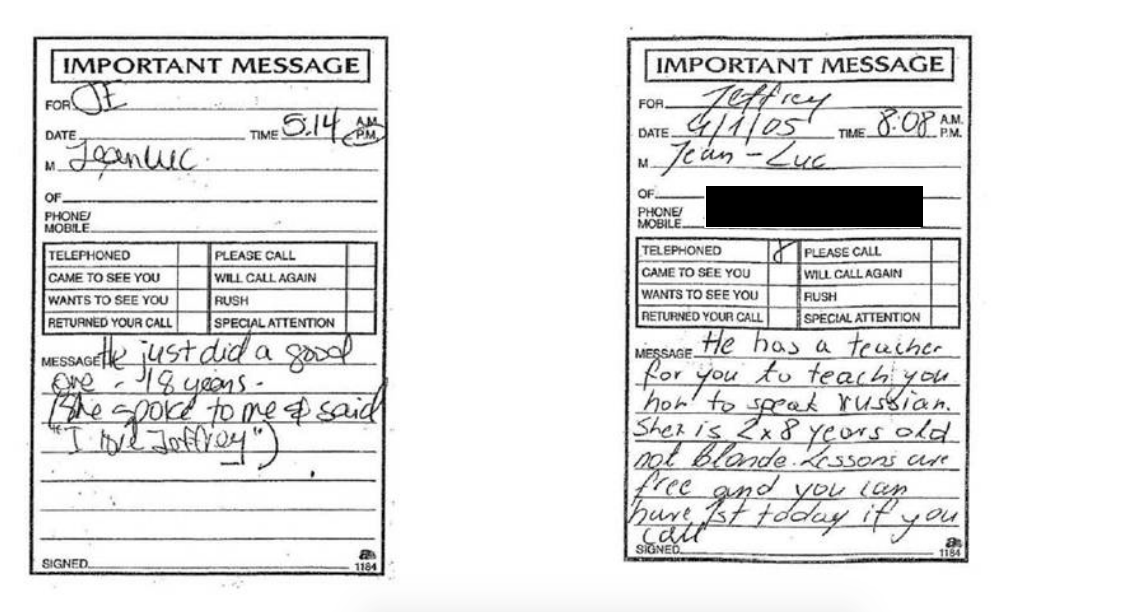 IMPORTANT MESSAGE
FOR JE
DATE TIME 5:14 A.M.
P.M.
M Jean Luc
OF
PHONE/
MOBILE
TELEPHONED PLEASE CALL
CAME TO SEE YOU WILL CALL AGAIN
WANTS TO SEE YOU RUSH
RETURNED YOUR CALL SPECIAL ATTENTION
MESSAGE He just did a good
one - 18 years -
(She spoke to me & said
"I love Jeffrey")
SIGNED
1184
IMPORTANT MESSAGE
FOR Jeffrey
DATE 4/1/05 TIME 8:08 A.M.
P.M.
M Jean-Luc
OF
PHONE/
MOBILE
TELEPHONED PLEASE CALL
CAME TO SEE YOU WILL CALL AGAIN
WANTS TO SEE YOU RUSH
RETURNED YOUR CALL SPECIAL ATTENTION
MESSAGE He has a teacher
for you to teach you
how to speak russian.
is 2x8 years old
not blonde. Lessons are
free and you can
have 1st today if you
call
SIGNED
1184